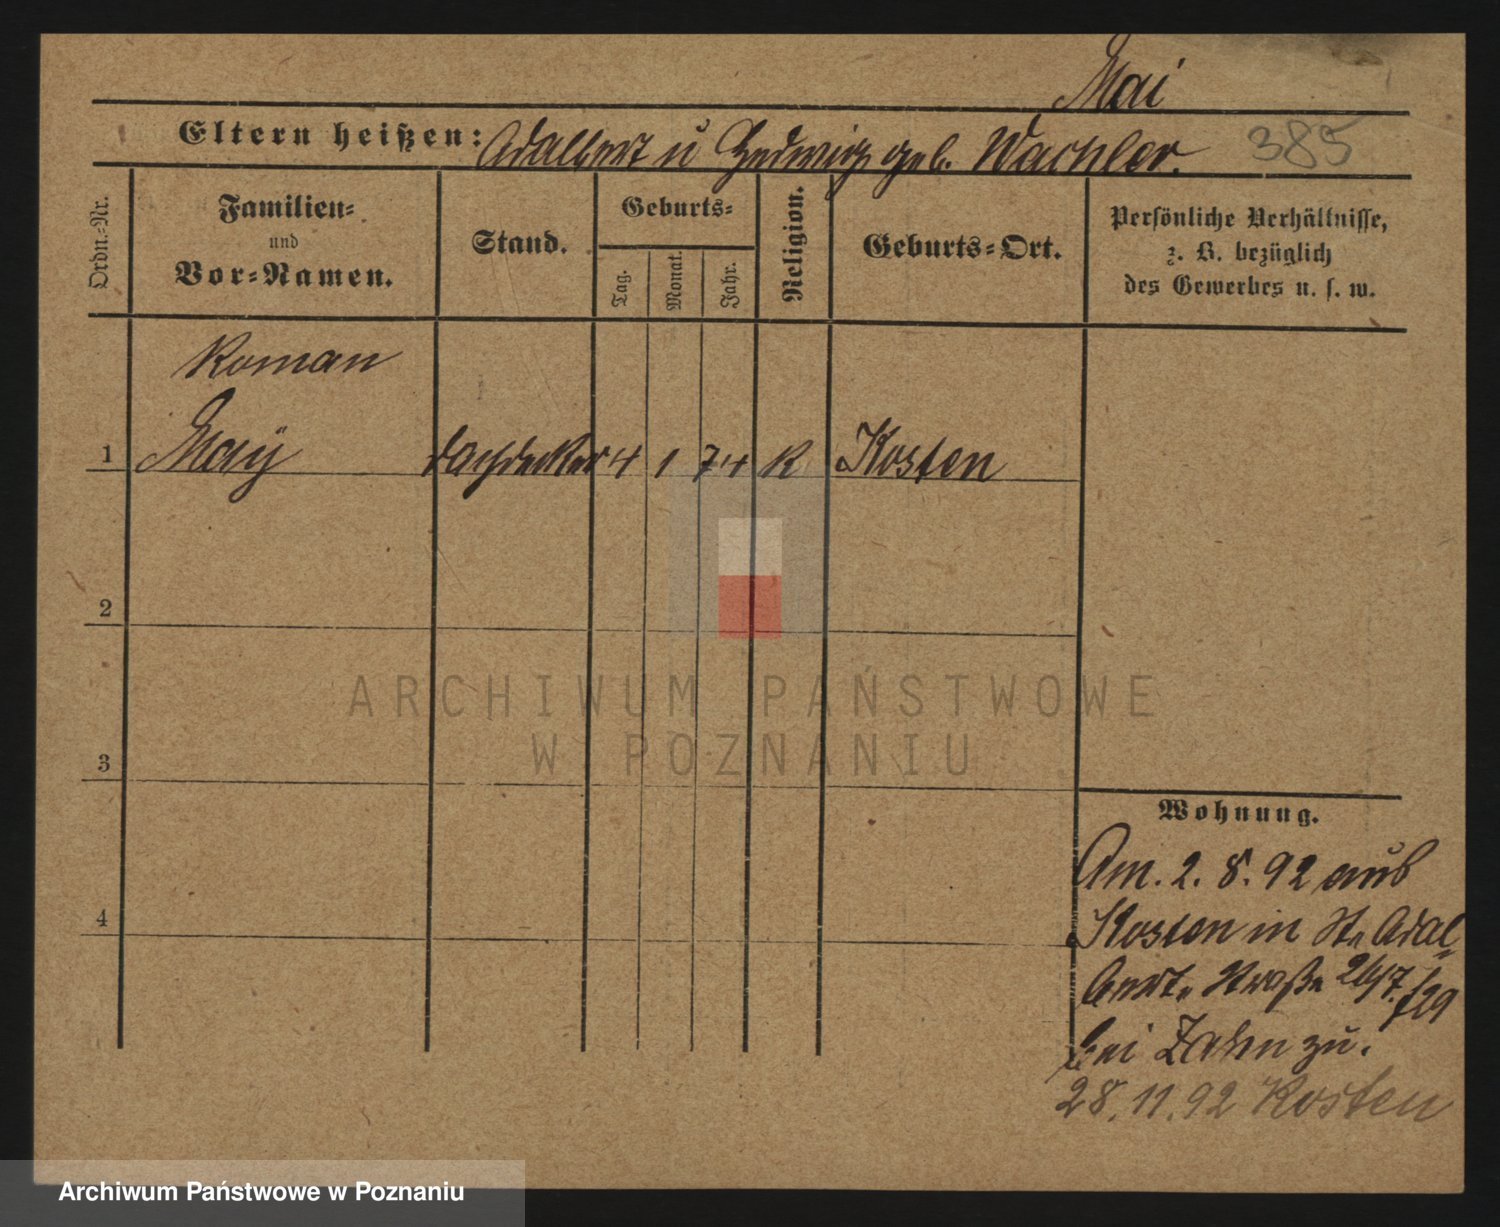 Mai
Eltern heißen: Adalbert u Hedwig geb. Wachler. 385
Ordn.-Nr.
Familien-
und
Vor-Namen.
Stand.
Geburts-
Tag.
Monat.
Jahr.
Religion.
Geburts-Ort.
Persönliche Verhältnisse,
z. B. bezüglich
des Gewerbes u. s. w.
Roman
1 Maÿ Dachdecker 4 1 74 K Kosten
2
ARCHIWUM PAŃSTWOWE
W POZNANIU
3
Wohnung.
Am. 2. 8. 92 aus
4
Kosten in St. Adal-
bert. Straße 26/7. f 29
bei Zahn zu.
28. 11. 92 Kosten
Archiwum Państwowe w Poznaniu